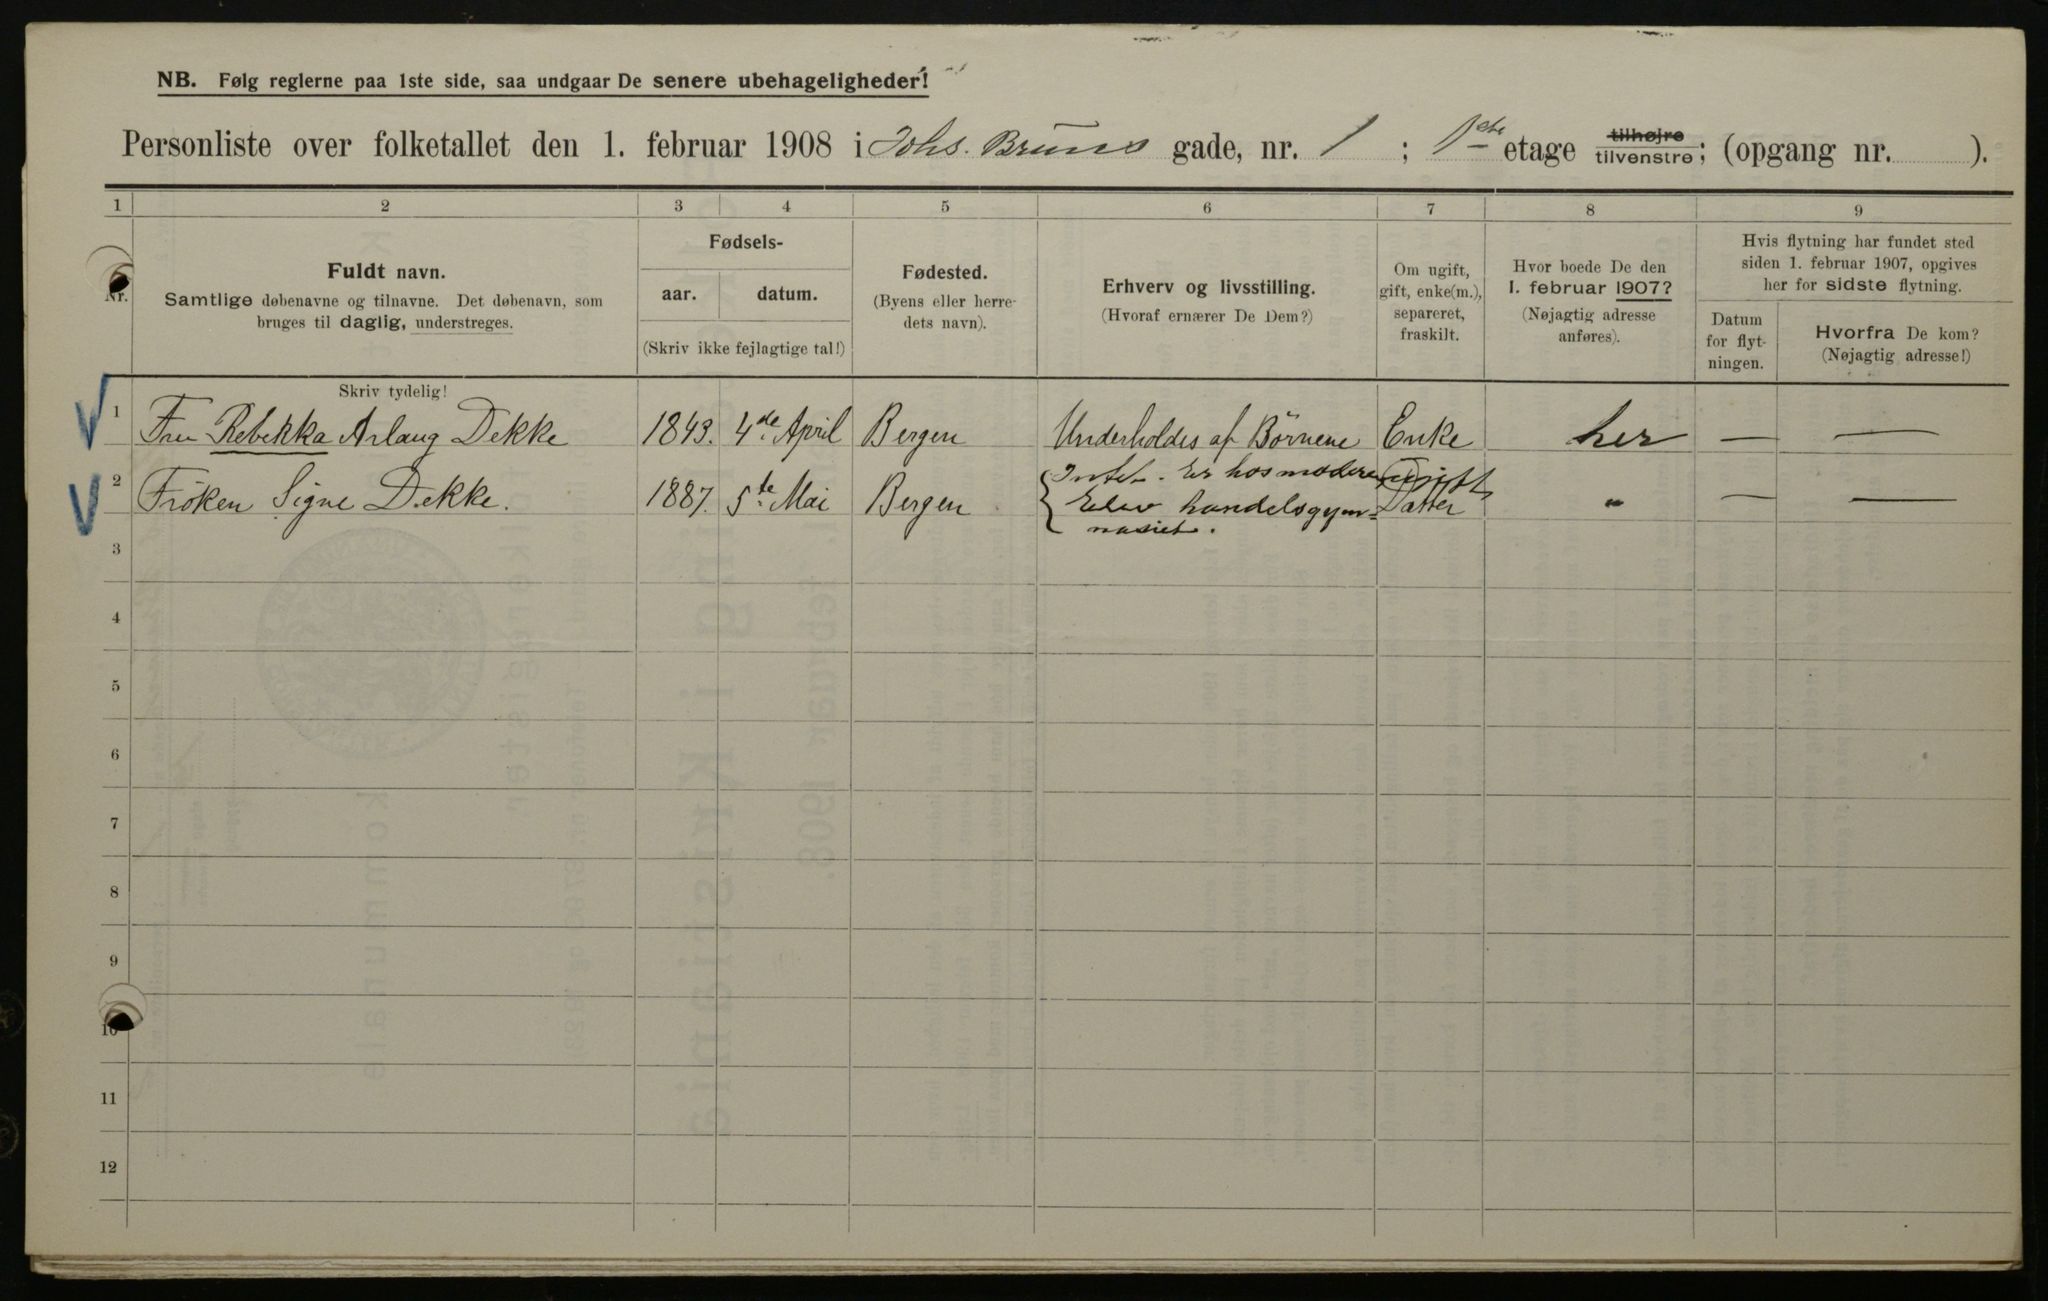 NB. Følg reglerne paa 1ste side, saa undgaar De senere ubehageligheder!
Personliste over folketallet den 1. februar 1908 i Johs. Bruns gade, nr. 1 ; 1ste etage tilhøjre tilvenstre; (opgang nr. ).
1 2 3 4 5 6 7 8 9
Nr.
Fuldt navn.
Samtlige døbenavne og tilnavne. Det døbenavn, som
bruges til daglig, understreges.
Skriv tydelig!
Fødsels-
aar. datum.
(Skriv ikke fejlagtige tal!)
Fødested.
(Byens eller herre-
dets navn).
Erhverv og livsstilling.
(Hvoraf ernærer De Dem?)
Om ugift,
gift, enke(m.),
separeret,
fraskilt.
Hvor boede De den
1. februar 1907?
(Nøjagtig adresse
anføres).
Hvis flytning har fundet sted
siden 1. februar 1907, opgives
her for sidste flytning.
Datum
for flyt-
ningen.
Hvorfra De kom?
(Nøjagtig adresse!)
1 Fru Rebekka Aslaug Dekke 1843. 4de April Bergen Underholdes af Børnene Enke her — —
2 Frøken Signe Dekke. 1887. 5te Mai Bergen Intet. Er hos moderen ugift " — —
Elev handelsgym= Datter
nasiet.
3
4
5
6
7
8
9
10
11
12